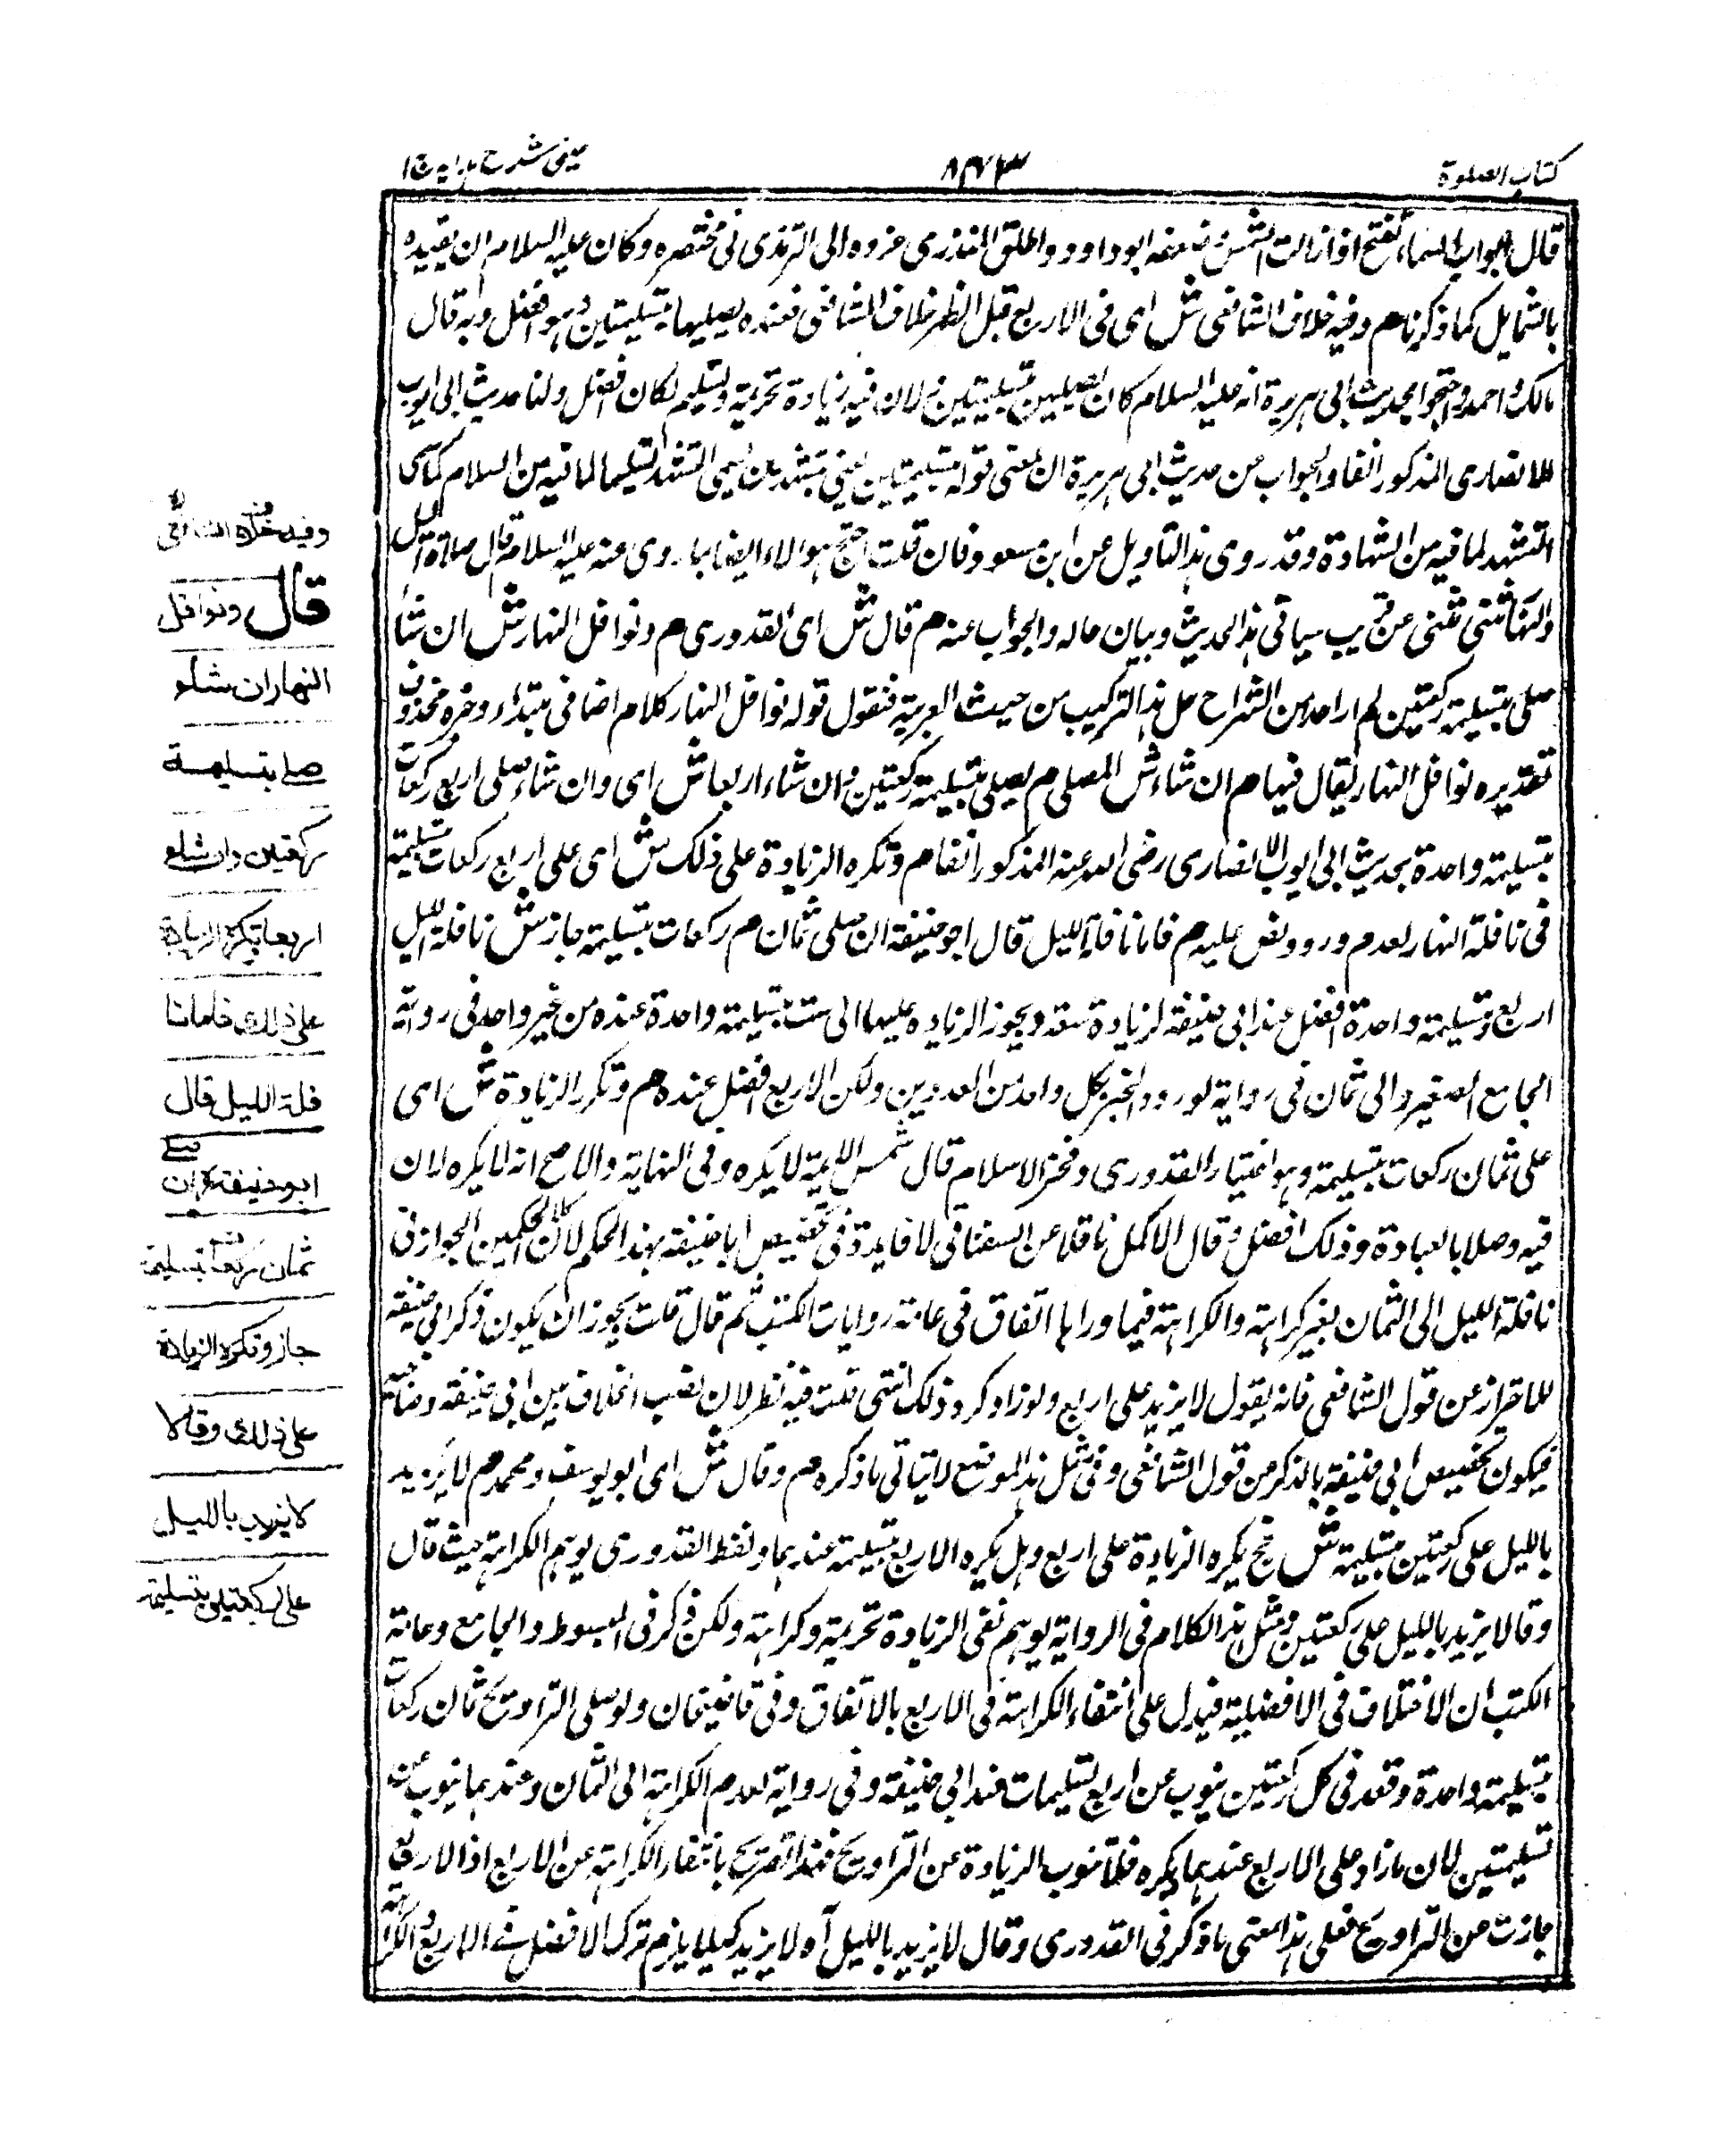 كتاب الصلوة
٨٤٣
عینی شرح ہدایہ ج ١
قال ابواب السماء تفتح اذا زالت الشمس ضعفه ابو داود واطلق المنذرى عزوه الى الترمذى فى مختصره وكان عليه السلام ان يقيده
بالشمايل كما ذكرنا م وفيه خلاف الشافعى ش اى فى الاربع قبل الظهر خلاف الشافعى فعنده يصليها بتسليمتين وهو افضل وبه قال
مالك واحمد واحتجوا بحديث ابى هريرة انه عليه السلام كان يصليهن بتسليمتين لان فيه زيادة تحريمة وتسليم لكان افضل ولنا حديث ابى ايوب
الانصارى المذكور انفا والجواب عن حديث ابى هريرة ان معنى قوله بتسليمتين يعنى بتشهدين سمى التشهد تسليما لما فيه من السلام كما سمى
التشهد لما فيه من الشهادة وقد روى هذا التاويل عن ابن مسعود فان قلت احتج هولاء ايضا بما روى عنه عليه السلام قال صلاة الليل
والنهار مثنى مثنى عن قريب سياتى هذا الحديث وبيان حاله والجواب عنه م قال ش اى القدورى م ونوافل النهار ش ان شاء
صلى بتسليمة ركعتين لم ار احدا من الشراح حل هذا التركيب من حيث العربية فنقول قوله نوافل النهار كلام اضافى مبتداء وخبره محذوف
تقديره نوافل النهار يقال فيها م ان شاء ش المصلى م يصلى بتسليمة ركعتين وان شاء اربعا ش اى وان شاء صلى اربع ركعات
بتسليمة واحدة بحديث ابى ايوب الانصارى رضى الله عنه المذكور انفا م وتكره الزيادة على ذلك ش اى على اربع ركعات بتسليمة
فى نافلة النهار لعدم ورود نص عليه م فاما نافلة الليل قال ابو حنيفة ان صلى ثمان م ركعات بتسليمة جاز ش نافلة الليل
اربع بتسليمة واحدة افضل عند ابى حنيفة لزيادة مشقة ويجوز الزيادة عليها الى ست بتسليمة واحدة عنده من غير واحد فى رواية
الجامع الصغير والى ثمان فى رواية لورود الخبر بكل واحد من العددين ولكن الاربع افضل عنده م وتكره الزيادة ش اى
على ثمان ركعات بتسليمة وهو اختيار القدورى وفخر الاسلام قال شمس الايمة لا يكره وفى النهاية والاصح انه لا يكره لان
فيه وصلا بالعبادة وذلك افضل وقال الاكمل ناقلا عن السغناقى لا فايدة فى تخصيص ابا حنيفة بهذا الحكم لان كلا الحكمين الجواز فى
نافلة الليل الى الثمان بغير كراهة والكراهة فيما وراها اتفاق فى عامة روايات الكتب ثم قال قلت يجوز ان يكون ذكر ابى حنيفة
للاحتراز عن قول الشافعى فانه يقول لا يزيد على اربع ولو زاد كره ذلك انتهى قلت فيه نظر لان نصب الخلاف بين ابى حنيفة وصاحبيه
فيكون تخصيص ابى حنيفة بالذكر من قول الشافعى وفى مثل هذا الموضع لا يتاتى ما ذكره م وقال ش اى ابو يوسف ومحمد م لا يزيد
بالليل على ركعتين بتسليمة ش فح يكره الزيادة على اربع وهل يكره الاربع بتسليمة عندهما ولفظ القدورى يوهم الكراهة حيث قال
وقالا لا يزيد بالليل على ركعتين ومثل هذا الكلام فى الرواية يوهم نفى الزيادة تحريمة وكراهة ولكن ذكر فى المبسوط والجامع وعامة
الكتب ان الاختلاف فى الافضلية فيدل على انتفاء الكراهة فى الاربع بالاتفاق وفى قاضيخان ولو صلى التراويح ثمان ركعات
بتسليمة واحدة وقعد فى كل ركعتين ينوب عن اربع تسليمات عند ابى حنيفة وفى رواية لعدم الكراهة الى الثمان وعندهما ينوب عن
تسليمتين لان ما زاد على الاربع عندهما يكره فلا تنوب الزيادة عن التراويح فهذا تصريح بانتفاء الكراهة عن الاربع اذ الاربع
جازت عن التراويح فعلى هذا معنى ما ذكر فى القدورى وقال لا يزيد بالليل اه لا يزيد كيلا يلزم ترك الافضل فى الاربع الكراهة
وفيه خلاف الشافعى
قال ونوافل
النهار ان شاء
صلے بتسليمة
ركعتين وان شاء
اربعا وتكره الزيادة
على ذلك فاما نا
فلة الليل قال
ابو حنيفة ان صلے
ثمان ركعات بتسليمة
جاز وتكره الزيادة
على ذلك وقالا
لا يزيد بالليل
على ركعتين بتسليمة